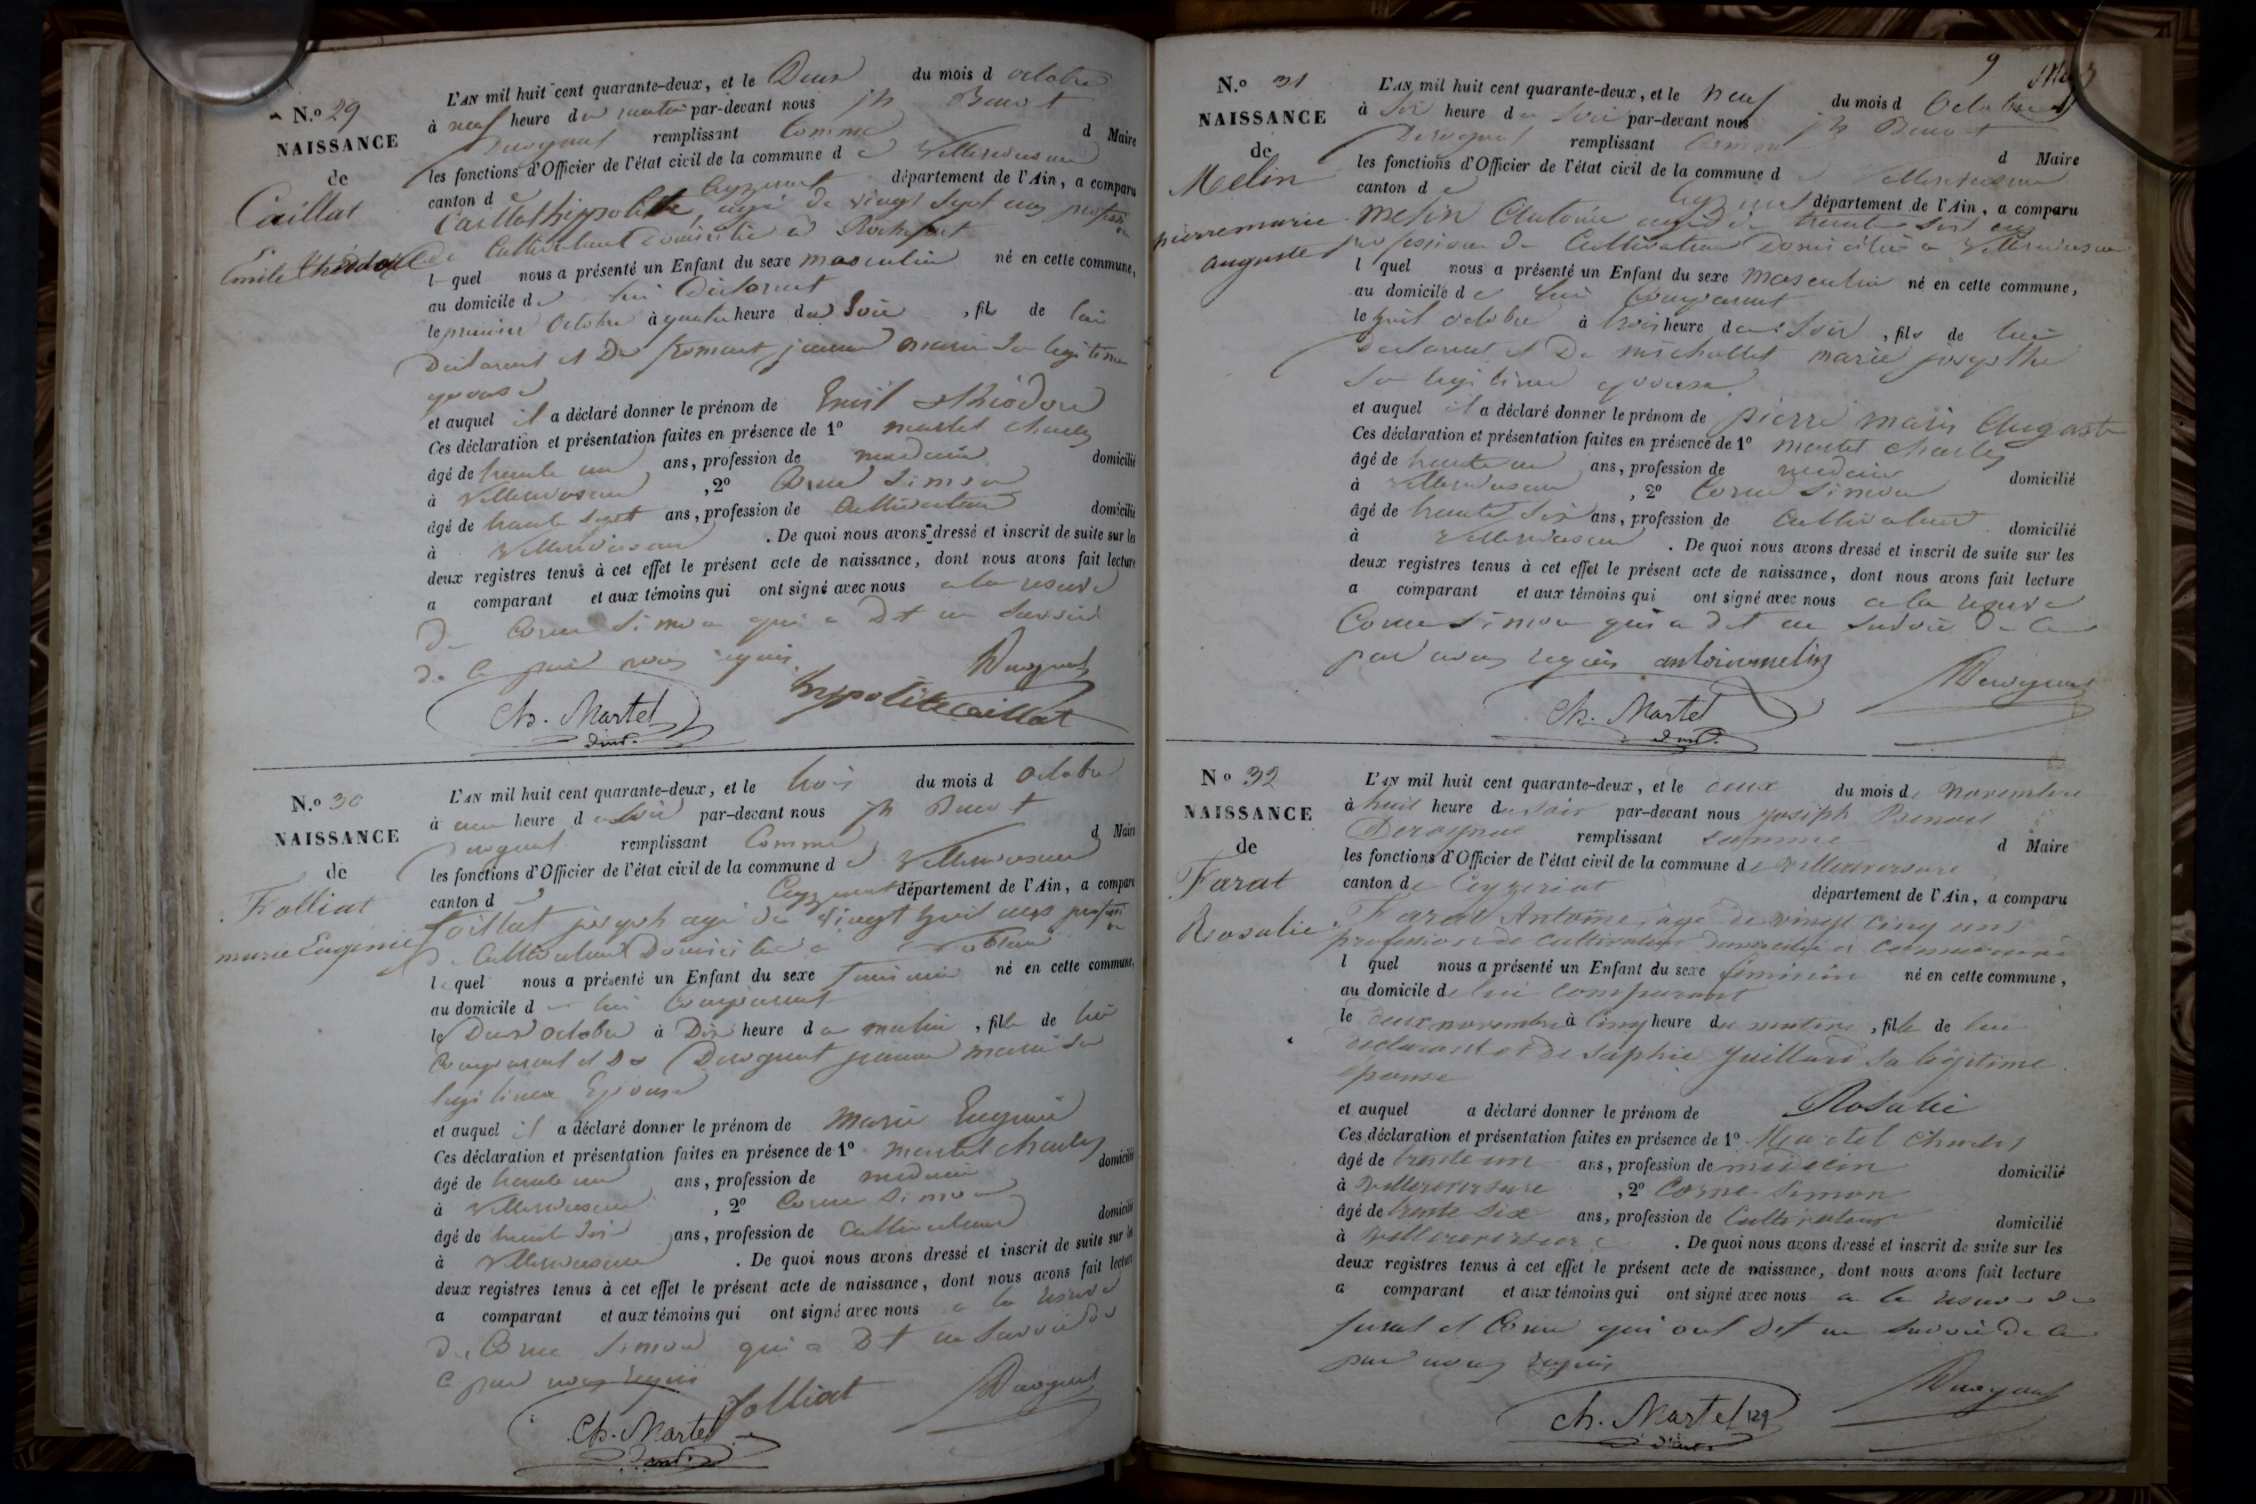 N.º 29
NAISSANCE
de
Caillat
Emile Théodore
L'AN mil huit cent quarante-deux, et le Deux du mois d octobre
à neuf heure du matin par-devant nous jh Benoit
Derognat remplissant Comme d Maire
les fonctions d'Officier de l'état civil de la commune d e Villereversure
canton d e Ceyzeriat département de l'Ain, a comparu
Caillat hippolitte agé de vingt sept ans profession
de Cultivateur domicilié à Rochefort
l quel nous a présenté un Enfant du sexe masculin né en cette commune,
au domicile de lui Déclarant
le premier Octobre à quatre heure du Soir, fils de lui
Déclarant et De jeanne marie Sa legitime
epouse
et auquel il a déclaré donner le prénom de Emil théodore
Ces déclaration et présentation faites en présence de 1º martel charles
âgé de trente un ans, profession de medecin domicilié
à Villereversure, 2º Corne Simon
âgé de trente sept ans, profession de Cultivateur domicilié
à Villereversure. De quoi nous avons dressé et inscrit de suite sur les
deux registres tenus à cet effet le présent acte de naissance, dont nous avons fait lecture
a comparant et aux témoins qui ont signé avec nous a la reserve
De Corne Simon qui a Dit ne Savoir
de ce par nous requis
Derognat
hypolite Caillat
Ch. Martel
N.º 30
NAISSANCE
de
Folliat
marie Eugenie
L'AN mil huit cent quarante-deux, et le trois du mois d octobre
à une heure du Soir par-devant nous jh Benoit
Derognat remplissant Comme d Maire
les fonctions d'Officier de l'état civil de la commune d e Villereversure
canton d e Ceyzeriat département de l'Ain, a comparu
foillat joseph agé de vingt huit ans profession
de Cultivateur Domicilié a
le quel nous a présenté un Enfant du sexe feminin né en cette commune,
au domicile de lui Comparant
le Deux octobre à Dix heure du matin, fille de lui
Comparant et De Derognat jeanne marie Sa
legitime Epouse
et auquel il a déclaré donner le prénom de Marie Eugenie
Ces déclaration et présentation faites en présence de 1º martel charles
âgé de trente un ans, profession de medecin domicilié
à Villereversure, 2º Corne Simon
âgé de trente Six ans, profession de Cultivateur domicilié
à Villereversure. De quoi nous avons dressé et inscrit de suite sur les
deux registres tenus à cet effet le présent acte de naissance, dont nous avons fait lecture
a comparant et aux témoins qui ont signé avec nous a la reserve
De Corne Simon qui a Dit ne Savoir de
ce par nous requis
Folliat
Derognat
Ch. Martel
9
N.º 31
NAISSANCE
de
Melin
pierre marie
auguste
L'AN mil huit cent quarante-deux, et le neuf du mois d Octobre
à Six heure du Soir par-devant nous jh Benoit
Derognat remplissant Comme d Maire
les fonctions d'Officier de l'état civil de la commune d e Villereversure
canton d e Ceyzeriat département de l'Ain, a comparu
melin Antoine agé de trente Six ans
profession de Cultivateur Domicilié a Villereversure
l quel nous a présenté un Enfant du sexe masculin né en cette commune,
au domicile de lui Comparant
le huit octobre à trois heure du Soir, fils de lui
Declarant et De michallet marie josephte
Sa legitime epouse
et auquel il a déclaré donner le prénom de pierre marie Auguste
Ces déclaration et présentation faites en présence de 1º martel charles
âgé de trente un ans, profession de medecin domicilié
à Villereversure, 2º Corne Simon
âgé de trente Six ans, profession de Cultivateur domicilié
à Villereversure. De quoi nous avons dressé et inscrit de suite sur les
deux registres tenus à cet effet le présent acte de naissance, dont nous avons fait lecture
a comparant et aux témoins qui ont signé avec nous a la reserve
Corne Simon qui a dit ne Savoir De ce
par nous requis antoine melin
Derognat
Ch. Martel
Nº 32
NAISSANCE
de
Farat
Rosalie
L'AN mil huit cent quarante-deux, et le deux du mois de novembre
à huit heure du soir par-devant nous joseph Benoit
Derognat remplissant comme d Maire
les fonctions d'Officier de l'état civil de la commune de villereversure
canton de Ceyzeriat département de l'Ain, a comparu
Farat Antoine, agé de vingt cinq ans
profession de cultivateur domicilié a
l quel nous a présenté un Enfant du sexe féminin né en cette commune,
au domicile de lui comparant
le deux novembre à cinq heure du matin, fille de lui
declarant et de Sophie Guillard sa légitime
épouse
et auquel a déclaré donner le prénom de Rosalie
Ces déclaration et présentation faites en présence de 1º Martel Charles
âgé de trente un ans, profession de médecin domicilié
à villereversure, 2º Corne Simon
âgé de trente six ans, profession de Cultivateur domicilié
à villereversure. De quoi nous avons dressé et inscrit de suite sur les
deux registres tenus à cet effet le présent acte de naissance, dont nous avons fait lecture
a comparant et aux témoins qui ont signé avec nous a la reserve de
farat et Corne qui ont Dit ne Savoir de ce
par nous requis
Derognat
Ch. Martel